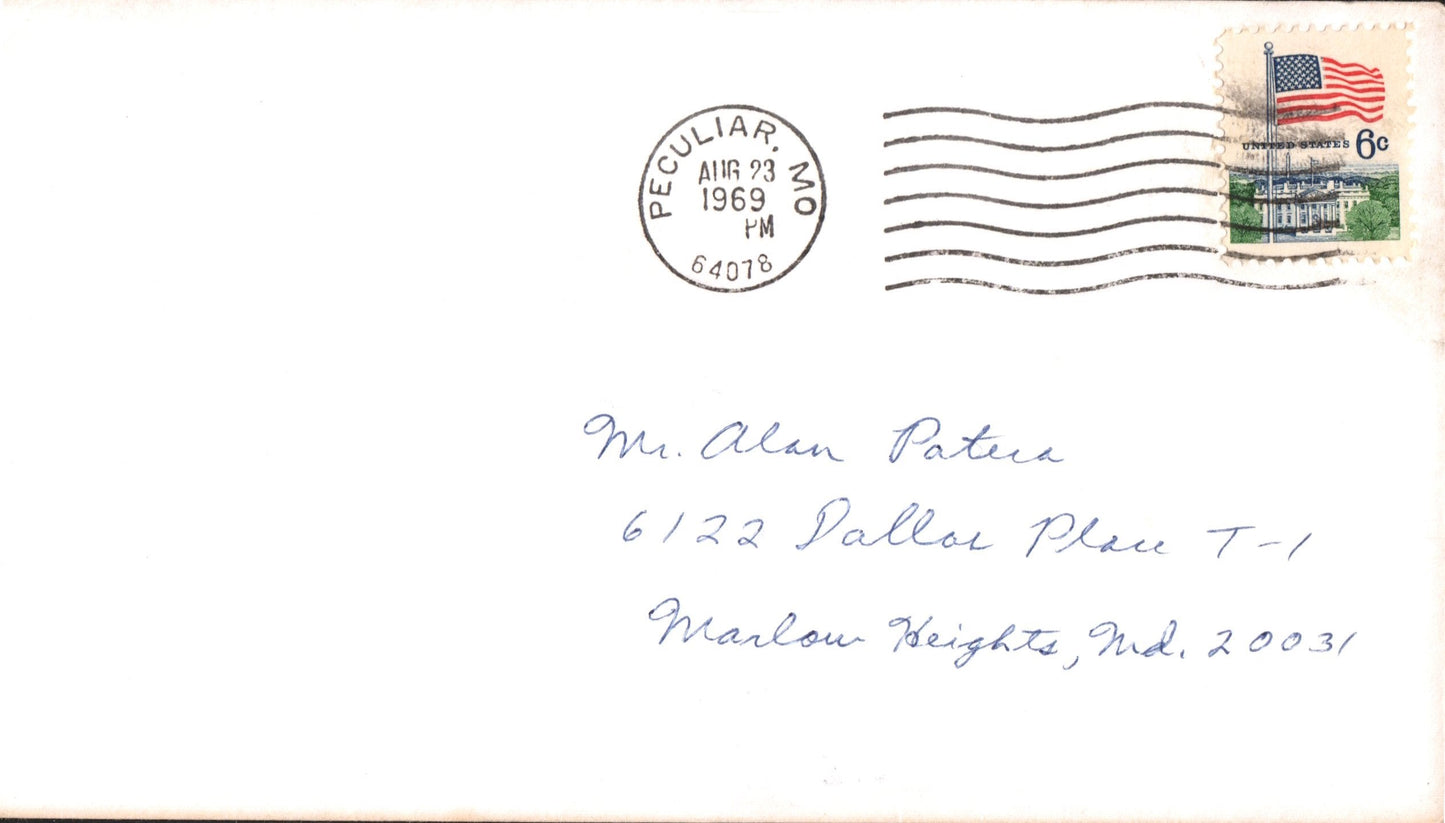 PECULIAR, MO
AUG 23
1969
PM
64078
UNITED STATES 6c
Mr. Alan Patera
6122 Dallas Place T-1
Marlow Heights, Md. 20031